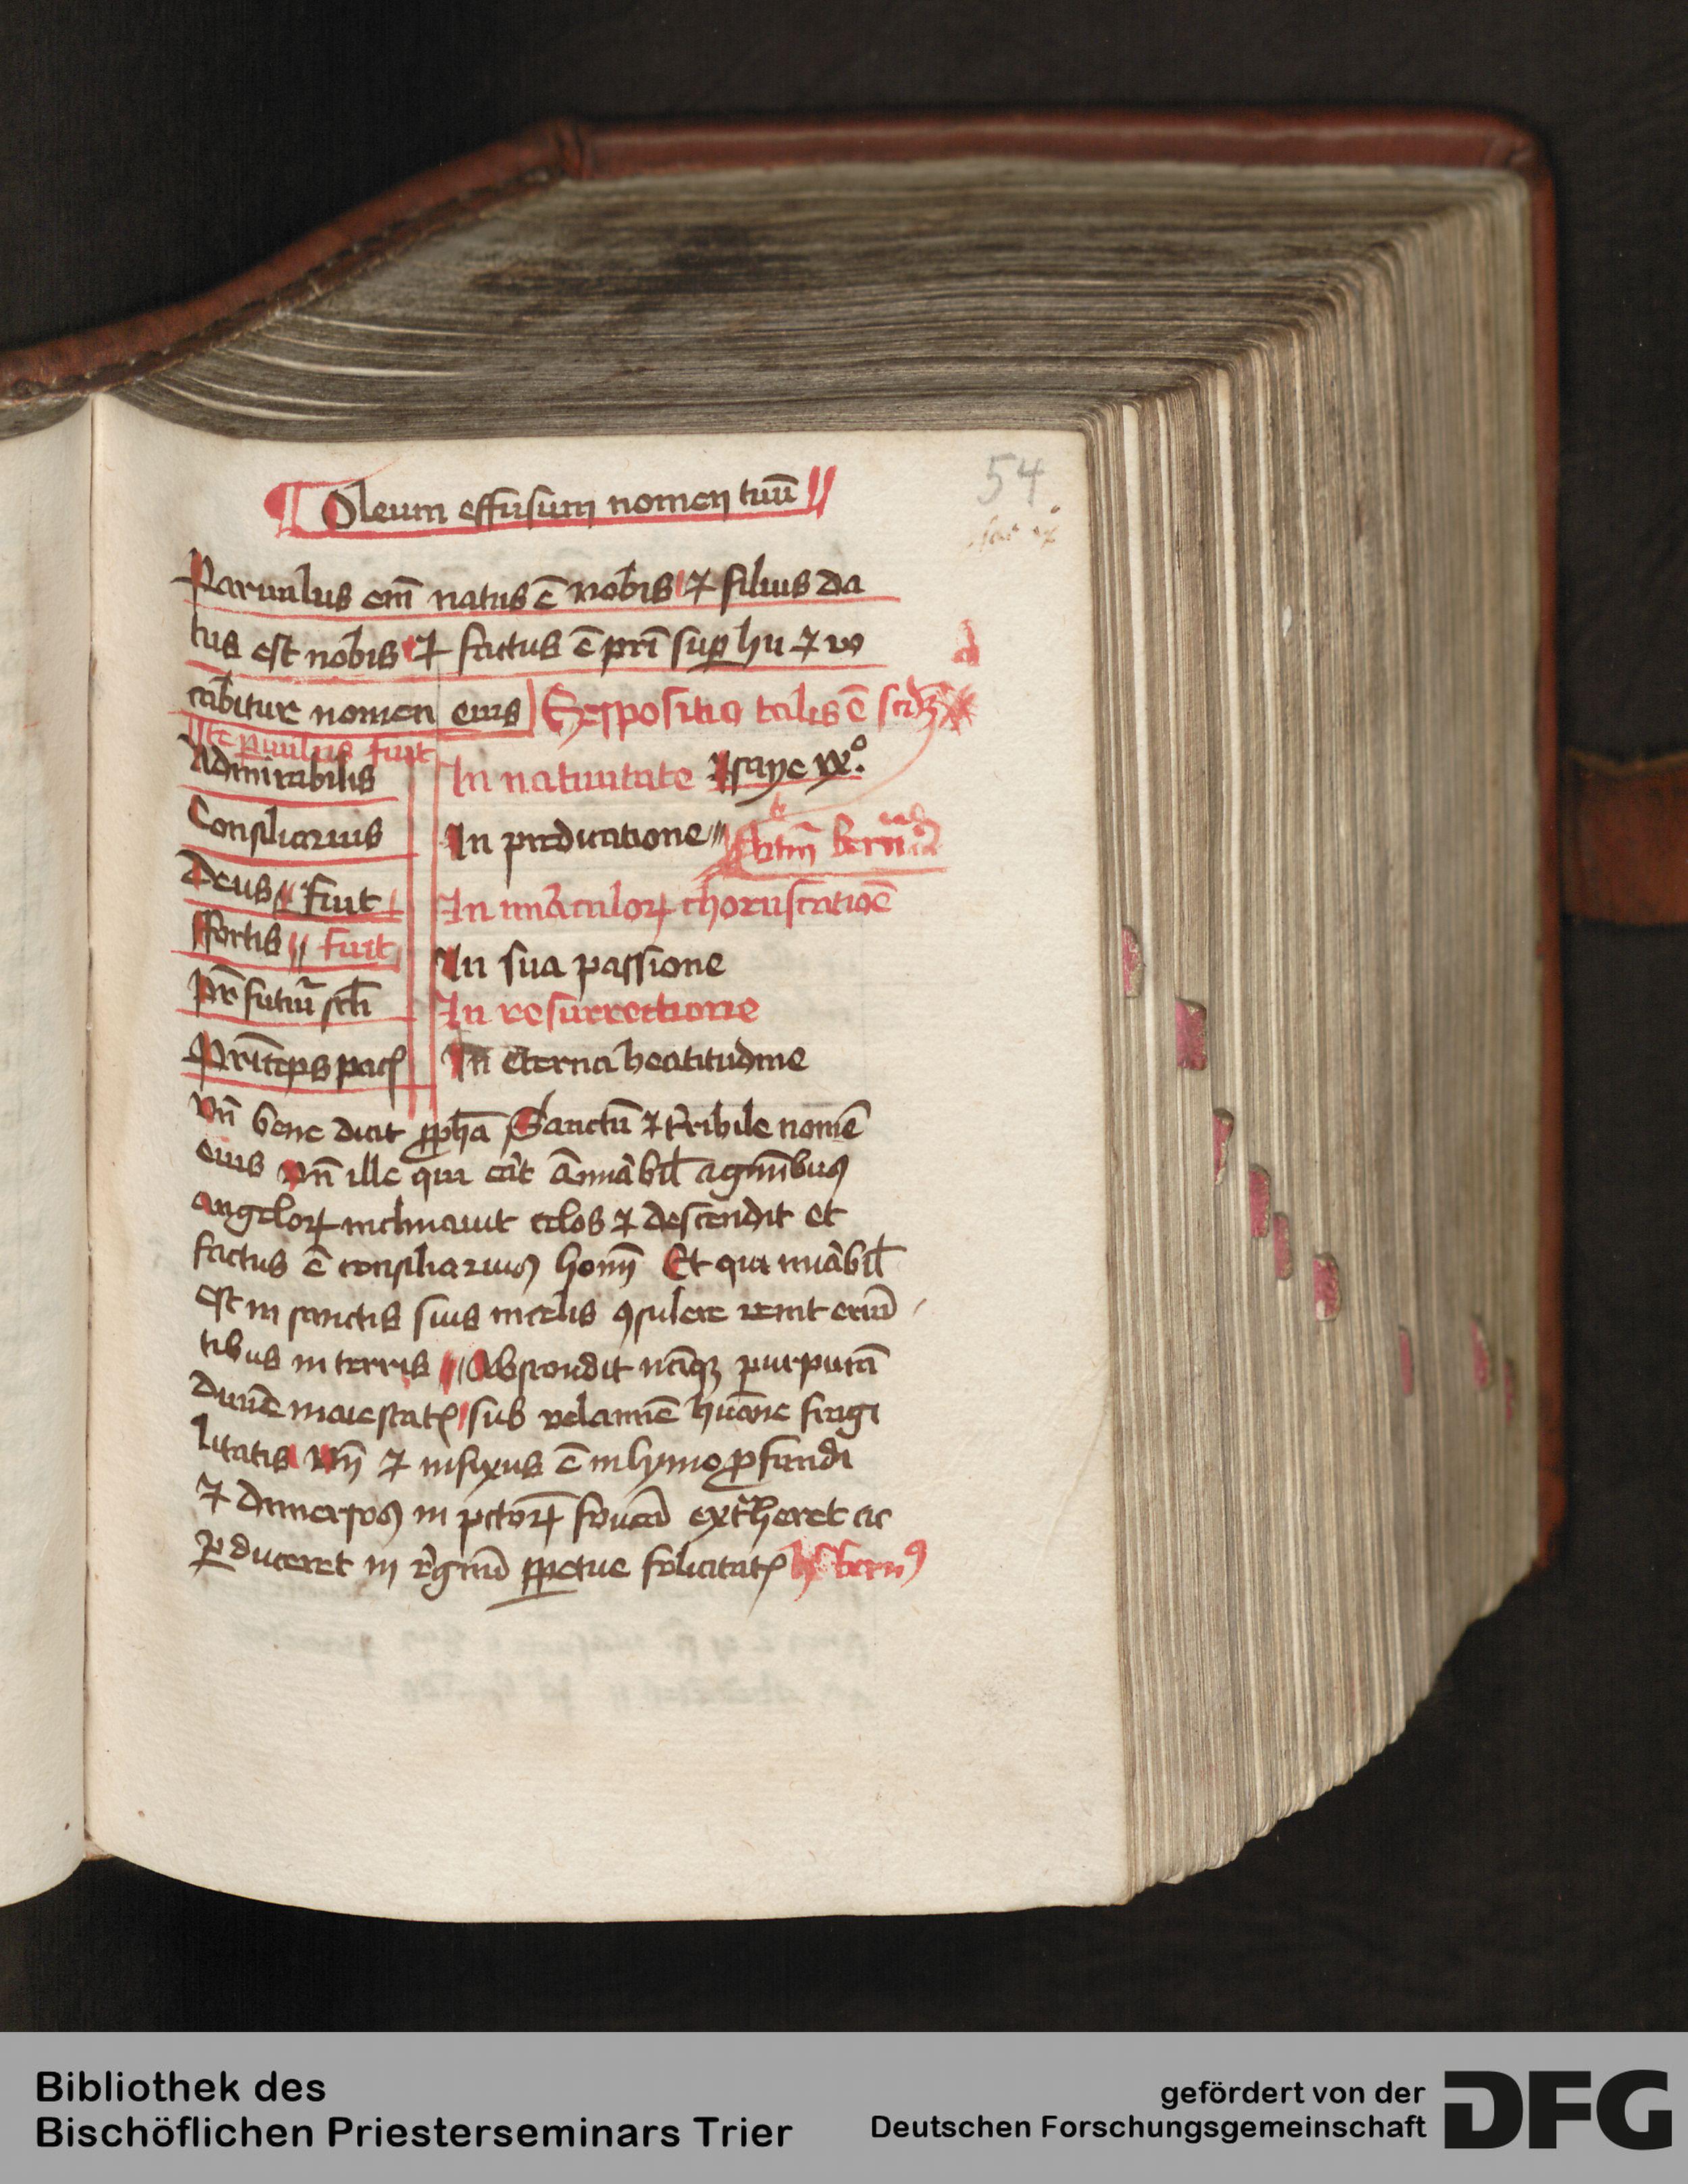 Oleum effusum nomen tuū
54
Paruulus em̄ natus ē nobis ⁊ filius da
tus est nobis ⁊ factus ē pri̅ sup hu ⁊ vo
cabitur nomen eius Expositio talis ē scd̄m
Iste puulus fuit
Admirabilis In natiuitate Isaye ix°.
Consiliarius In predicatione
Deus fuit In miraculoꝝ choruscatiōe
ffortis fuit In sua passione
Pr̄ futuri sc̄li In resurrectione
Prīceps pacꝭ In eterna beatitudine
Vn̄ bene dicit ꝓph̄a Sanctū ⁊ t̄ribile nomē
eius Vn̄ ille qui erat āmirabil̄ agminibus
angeloꝝ inclinauit celos ⁊ descendit et
factus ē consiliarius homi̅ Et qui mirabil̄
est in sanctis suis in celis ꝯsulere venit
tibus in terris Abscondit nāqꝫ purpurā
diuine maiestatꝭ sub velamīe hūane fragi
litatis Vn̄ ⁊ infixus ē in lymo ꝓfundi
⁊ dimersos in foueā ext̄heret ac
ꝑduceret in regnū ꝑpetue felicitatꝭ h̄ bernꝰ
Bibliothek des
Bischöflichen Priesterseminars Trier
gefördert von der
Deutschen Forschungsgemeinschaft
DFG